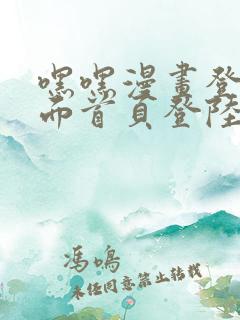 嘿嘿漫畫登
而首頁登陸
馮鳴
未経同意禁止转载